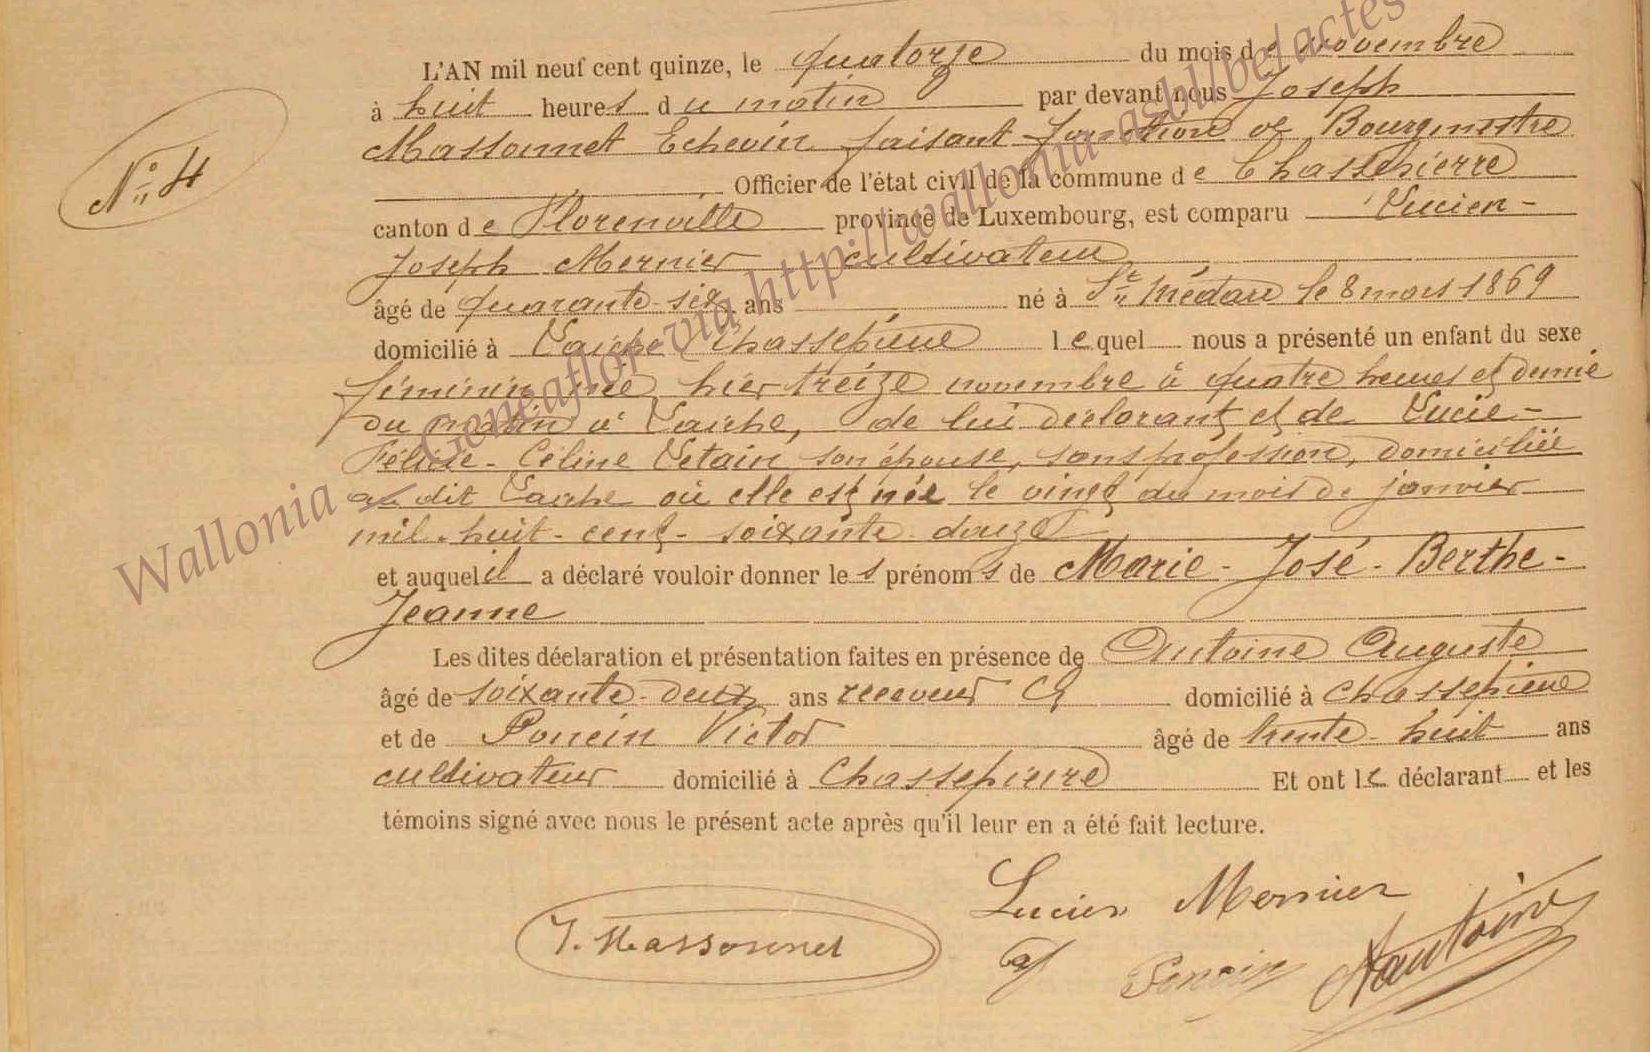 L'AN mil neuf cent quinze, le quatorze du mois de novembre
à huit heures du matin par devant nous Joseph
Massonnet Echevin faisant fonctions de Bourgmestre
Officier de l'état civil de la commune de Chassepierre
N° 4
canton de Florenville province de Luxembourg, est comparu Lucien-
Joseph Mernier cultivateur
âgé de quarante-six ans né à St Médard le 8 mars 1869
domicilié à Laiche Chassepierre lequel nous a présenté un enfant du sexe
féminin née hier treize novembre à quatre heures et demie
du matin à Laiche, de lui déclarant et de Lucie-
Félicie-Céline son épouse, sans profession, domiciliée
au dit Laiche où elle est née le vingt du mois de janvier
mil-huit-cent-soixante-douze
et auquel il a déclaré vouloir donner les prénoms de Marie-José-Berthe-
Jeanne
Les dites déclaration et présentation faites en présence de Antoine Auguste
âgé de soixante-deux ans receveur domicilié à Chassepierre
et de Poncin Victor âgé de trente-huit ans
cultivateur domicilié à Chassepierre Et ont le déclarant et les
témoins signé avec nous le présent acte après qu'il leur en a été fait lecture.
Lucien Mernier
J. Massonnet
Poncin Aantoine
Wallonia - Geneaflor via http://wallonia-asbl/be/actes